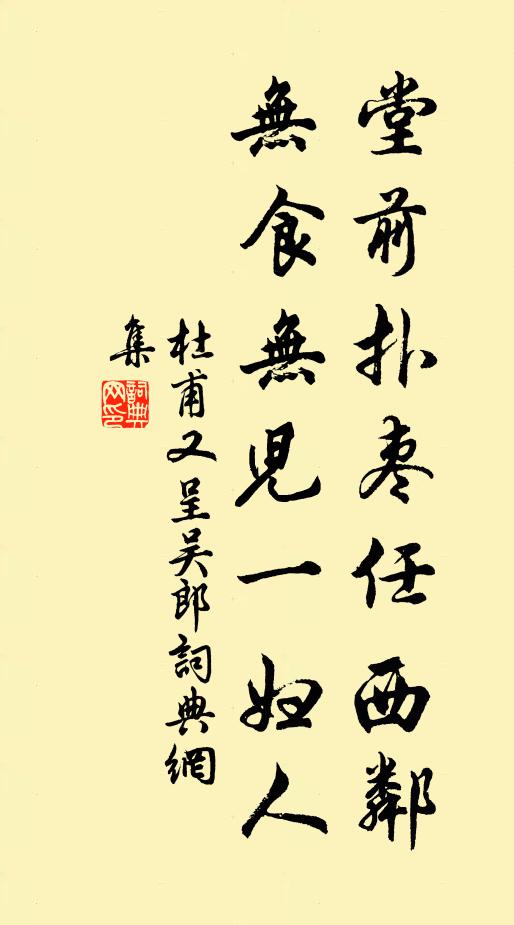 堂前扑枣任西鄰
無食無児一妇人
杜甫又呈吴郎詞典網
集
詞典網印